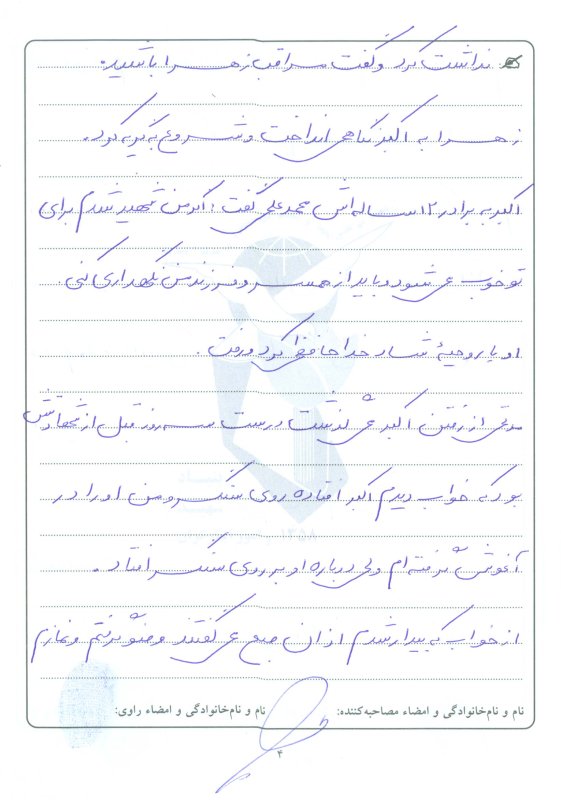 نداشت کرد و گفت مراقب زهرا باشید.
زهرا به اکبر نگاهی انداخت و شروع به گریه کرد.
اکبر به برادر ۱۲ ساله‌اش محمدعلی گفت: اگر من شهید شدم برای
تو خوب می‌شود و باید از همسر و فرزند من نگهداری کنی.
او با روحیهٔ شاد خداحافظی کرد و رفت.
مدتی از رفتن اکبر می‌گذشت درست سه روز قبل از شهادتش
بود که خواب دیدم اکبر افتاده روی سنگ و من او را در
آغوش گرفته‌ام ولی دوباره او بر روی سنگ افتاد.
از خواب که بیدار شدم اذان صبح می‌گفتند وضو گرفتم و نمازم
نام و نام‌خانوادگی و امضاء مصاحبه‌کننده:
نام و نام‌خانوادگی و امضاء راوی:
۴